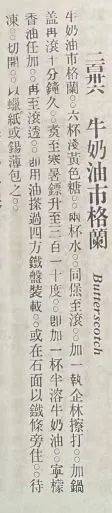 二百卅六　牛奶油市格蘭 Butterscotch
牛奶油市格蘭。。六杯淺黃色糖。。兩杯水。。同煲至滾。。加一執企林擦打。。加鍋
盖再滾十分鐘久。。煲至寒暑鏢升至二百一十度。。卽加一杯半溶牛奶油。。寧檬
香油任加。。再至滾透。。卽用油搽過四方鐵盤裝載。。或在石面以鐵條旁住。。待
凍。。切開。。以蠟紙或錫薄包之。。